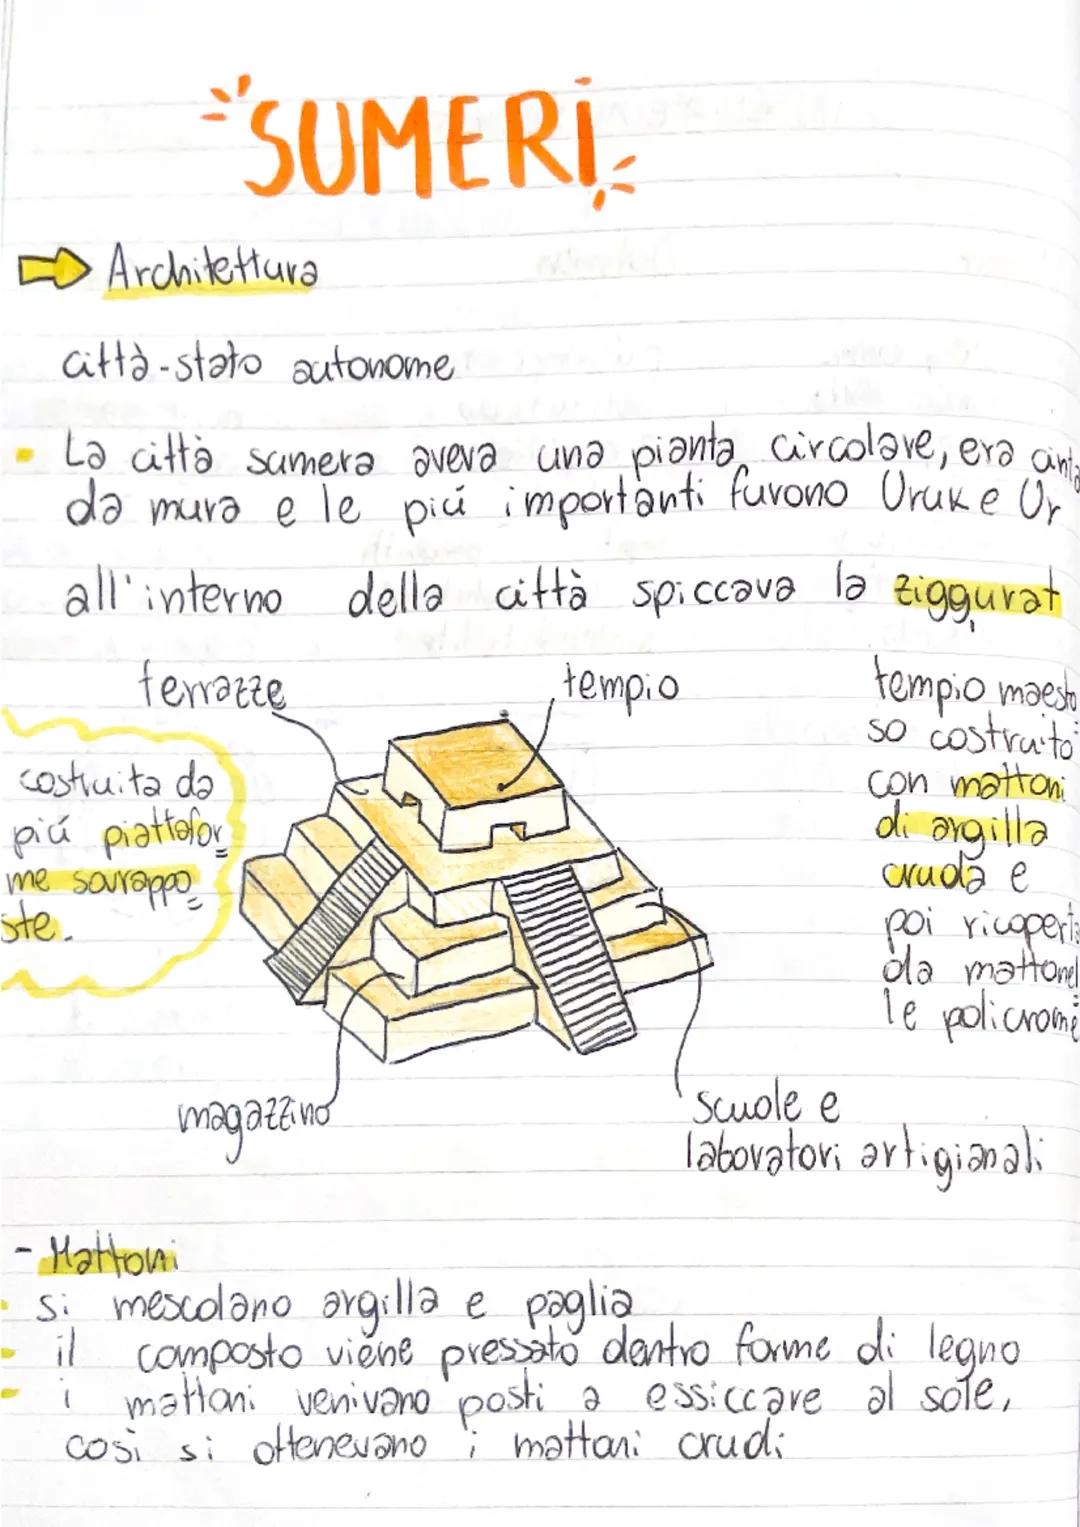 SUMERI
Architettura
città-stato autonome
La città sumera aveva una pianta circolare, era cinta
da mura e le piú importanti furono Uruk e Ur
all'interno della città spiccava la ziggurat
terrazze
tempio
costruita da
piú piattafor
me sovrappo
ste.
tempio maesto
so costruito
con mattoni
di argilla
cruda e
poi ricoperta
da mattonel
le policrome
magazzino
scuole e
laboratori artigianali
- Mattoni
si mescolano argilla e paglia
il composto viene pressato dentro forme di legno
i mattoni venivano posti a essiccare al sole,
così si ottenevano i mattoni crudi